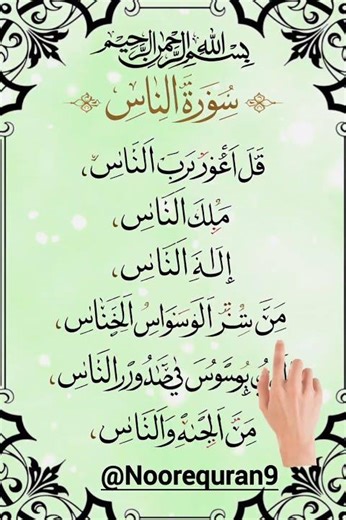 بِسْمِ اللهِ الرَّحْمٰنِ الرَّحِيْمِ
سُوْرَةُ النَّاسِ
قَلَ اَعُوْرَ بَرَبَ اَلنَاسِ،
مَلِكَ النَاسِ،
إِلَهَ اَلنَاسِ،
مَنَ شَرّ اَلوَسوَاسُ الخَنَاسِ،
بِوسْوُسَ فِي ضَدُورِ النَاسِ،
مَنَ اَلجِنَةِ وَالنَاسِ،
@Noorequran9